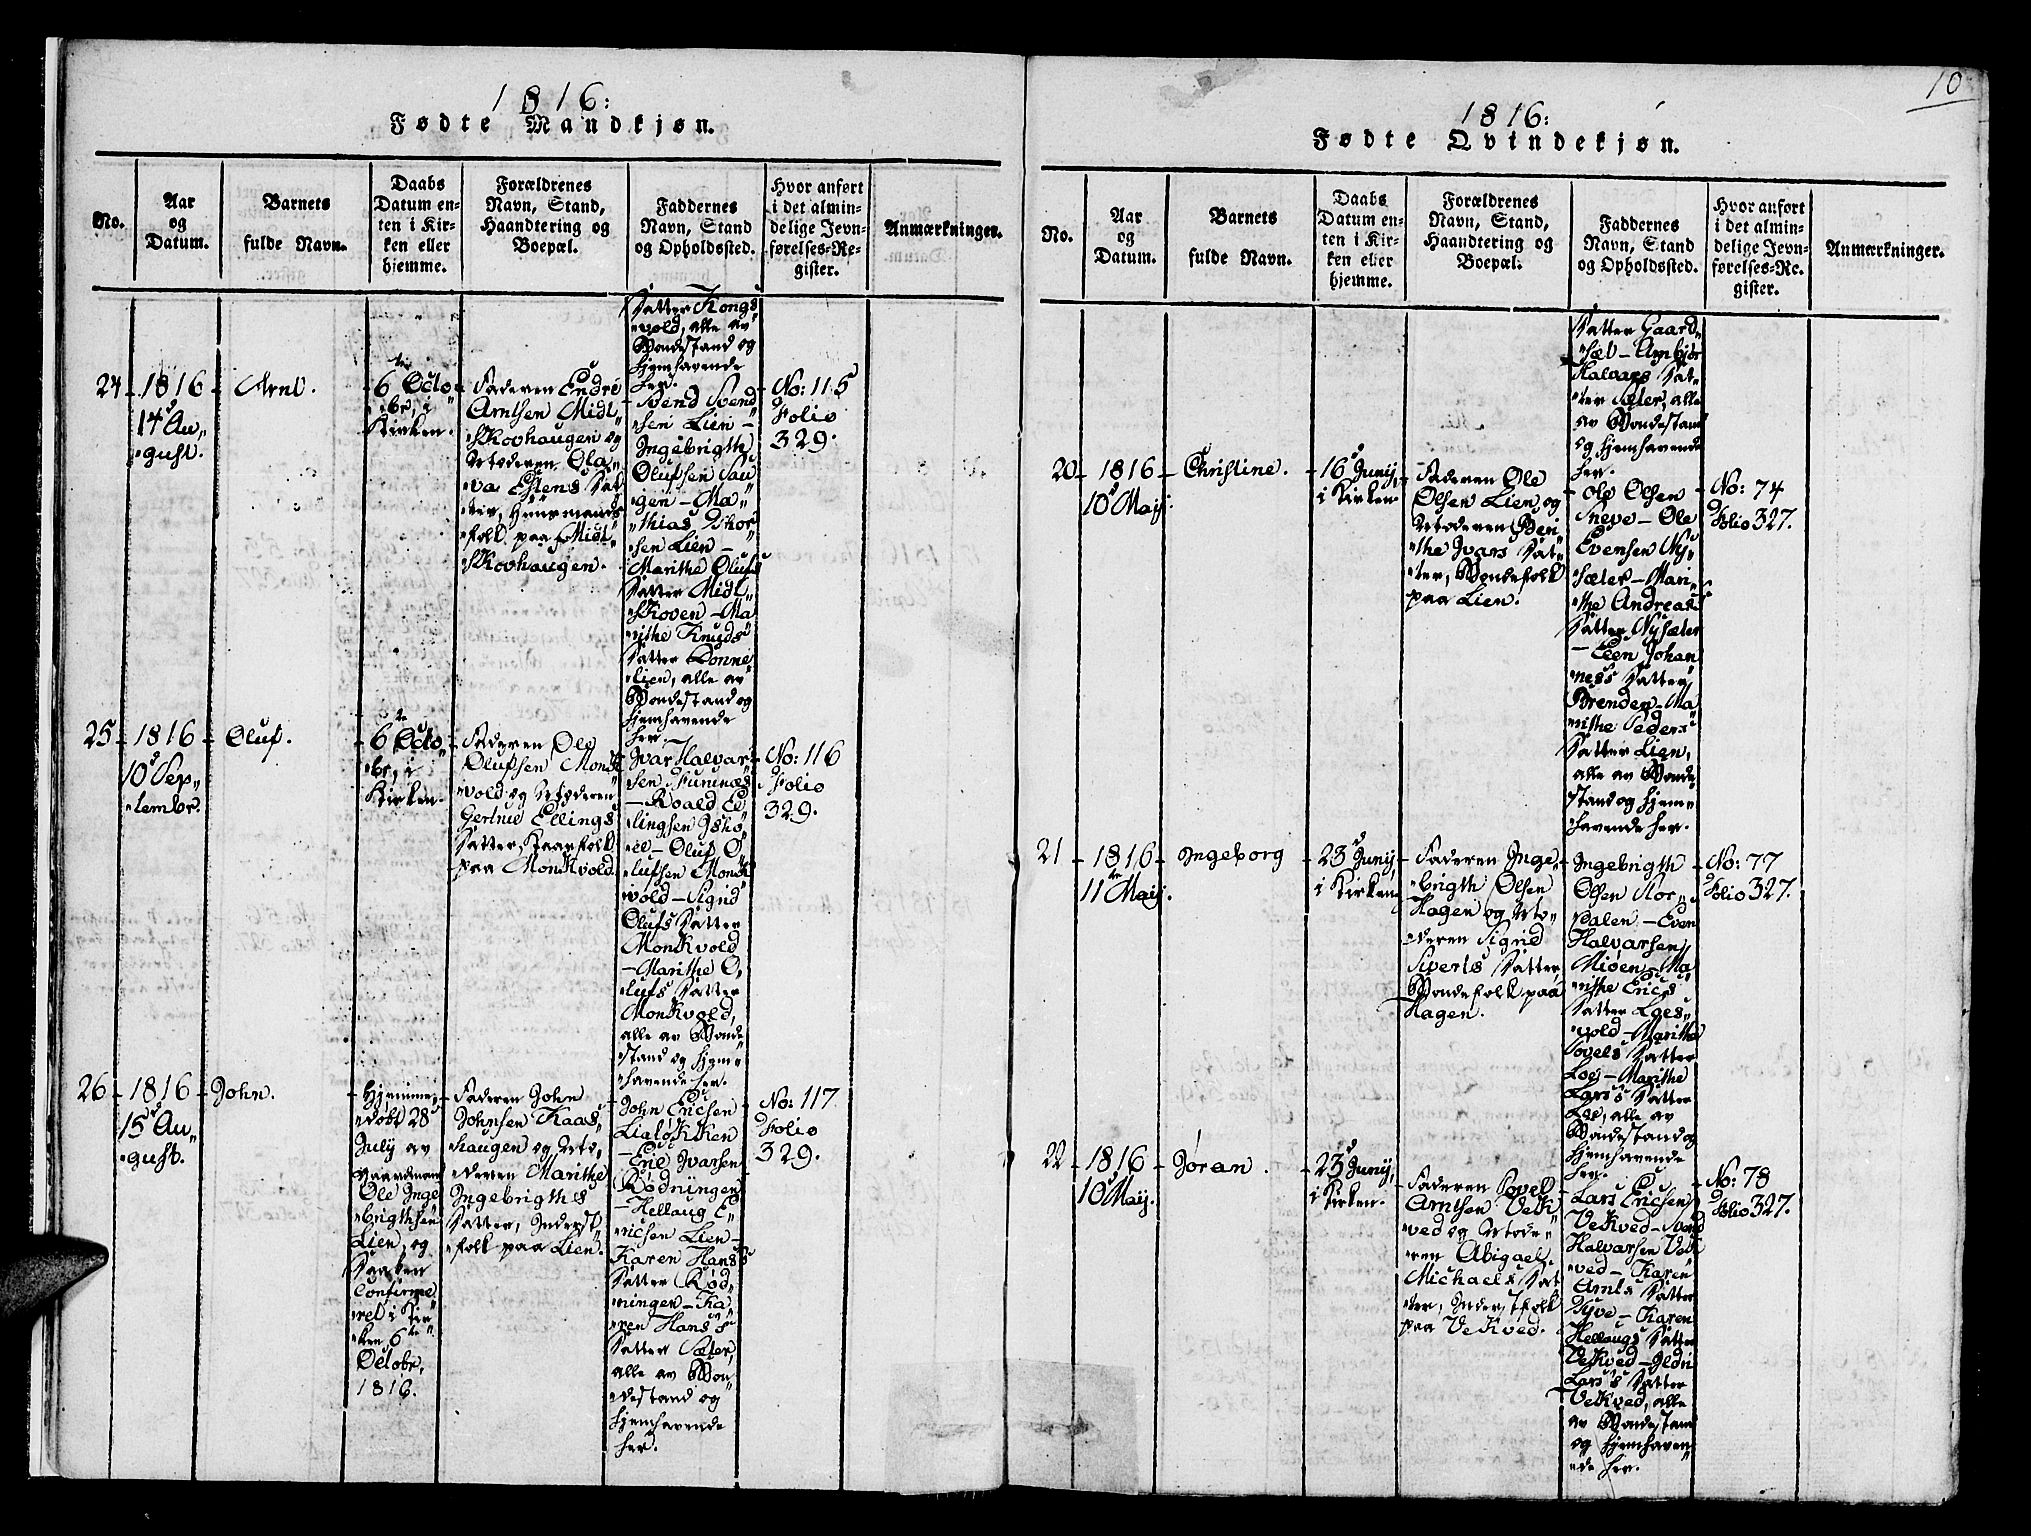 1816:
Fødte Mandkjøn.
No.
Aar
og
Datum.
Barnets
fulde Navn.
Daabs
Datum en-
ten i Kir-
ken eller
hjemme.
Forældrenes
Navn, Stand,
Haandtering og
Boepæl.
Faddernes
Navn, Stand
og Opholdssted.
Hvor anført
i det almin-
delige Jevn-
førelses-Re-
gister.
Anmærkninger.
Datter Kongs„
„vold, alle av
Bondestand og
hjemhavende
her.
24
1816
14d Au„
„gust.
Arnt.
6te Octo„
„br, i
Kirken.
Faderen Endre
Arntsen Midt„
„Skovhaugen og
Moderen Ola„
„va Estens Dat„
„ter, Huusmands„
„folk paa Midt„
„Skovhaugen.
Svend Svend„
„sen Lien –
Ingebrigth
Olufsen Hau„
„gen – Ma„
„thias
„sen Lien –
Marithe Olufs
Datter Midt„
„Skoven – Ma„
„rithe Knuds
Datter Ronne„
„lien, alle av
Bondestand og
hjemhavende
her.
No: 115
Folio
329.
25
1816
10d Sep„
„tembr.
Oluf.
6te Octo„
„br, i
Kirken.
Faderen Ole
Olufsen Monk„
„vold og Moderen
Gertrue Ellings
Datter,
paa Monkvold.
Ivar Halvar„
„sen Furunæs
– Roald El„
„lingsen Ishø„
„el – Oluf O„
„lufsen Monk„
„vold – Sigrid
Olufs Datter
Monkvold
– Marithe O„
„lufs Datter
Monkvold,
alle av Bonde„
„stand og hjem„
„havende her.
No: 116
Folio
329.
26
1816
15d Au„
„gust.
John.
Hjemme„
„døbt 28d
July av
Gaardmand
Ole Inge„
„brigthsen
Lien, og
Daaben
Confirme„
„ret i Kir„
„ken 6te
Octobr,
1816.
Faderen John
Johnsen Kaas„
„haugen og Mo„
„deren Marithe
Ingebrigths
Datter, Inderst„
„folk paa Lien.
John Ericsen
Lialøkken
– Eric Ivarsen
Rødningen
– Hellaug E„
„ricsen Lien –
Karen Hans's
Datter Rød„
„ningen – Ka„
„ren Hans's
Datter Sæter,
alle av Bon„
„destand og
hjemhavende
her.
No: 117.
Folio
329.
10
1816:
Fødte Qvindekjøn.
No.
Aar
og
Datum.
Barnets
fulde Navn.
Daabs
Datum en-
ten i Kir-
ken eller
hjemme.
Forældrenes
Navn, Stand,
Haandtering og
Boepæl.
Faddernes
Navn, Stand
og Opholdssted.
Hvor anført
i det almin-
delige Jevn-
førelses-Re-
gister.
Anmærkninger.
Datter Gaard„
„sæt – Annbjør
Halvars Dat„
„ter Sæter, alle
av Bondestand
og hjemhavende
her.
20
1816
10d Maij.
Christine.
16d Junij,
i Kirken
Faderen Ole
Olsen Lien, og
Moderen Beri„
„the Ivars Dat„
„ter, Bondefolk
paa Lien.
Ole Olsen
Sneve – Ole
Evensen Ny„
„sæter – Mari„
„the Andreas's
Datter Nysæter
– Eeen Johan„
„ness Datter,
Brenden – Ma„
„rithe Peders
Datter Lien,
alle av Bonde„
„stand og hjem„
„havende her.
No: 74
Folio 327.
21
1816
11te Maij.
Ingeborg
23d Junij,
i Kirken
Faderen Inge„
„brigth Olsen
Hagen og Mo„
„deren Sigrid
Siverts Datter,
Bondefolk paa
Hagen.
Ingebrigth
Olsen Nor„
„dalen – Even
Halvarsen
Miøen – Ma„
„rithe Erics
Datter Loes„
„vold – Marithe
Povels Datter
Loe – Marithe
Lars's Datter
Loe, alle av
Bondestand og
hjemhavende
her.
No: 77
Folio 327.
22
1816
10d Maij.
Jøran.
23d Junij,
i Kirken.
Faderen Povel
Arntsen Vek„
„ved og Mode„
„ren Abigael
Michaels Dat„
„ter, Inderstfolk
paa Vekved.
Lars Ericsen
Vekved – Svend
Halvarsen Vek„
„ved – Karen
Arnts Datter
– Karen
Hellaugs Datter
Vekved – Ildri
Lars's Datter
Vekved, alle
av Bondestand
og hjemhaven„
„de her.
No: 78
Folio 327.